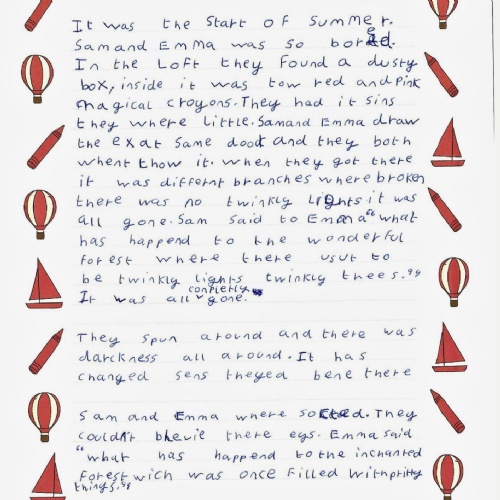 It was the start of summer.
Sam and Emma was so bored.
In the Loft they found a dusty
box, inside it was tow red and Pink
magical crayons. They had it sins
they where little. Sam and Emma draw
the exat same dood and they both
whent thow it. when they got there
it was differnt branches where broken
there was no twinkly lights it was
all gone. Sam said to Emma "what
has happend to the wonderful
forest where there usut to
be twinkly lights twinkly thees."
It was all conpletly gone.
They spun around and there was
darckness all around. It has
changed sens theyed bene there
Sam and Emma where soked. They
couldn't bhevie there eys. Emma said
"what has happend to the inchanted
forest wich was once filled with pritty
things."